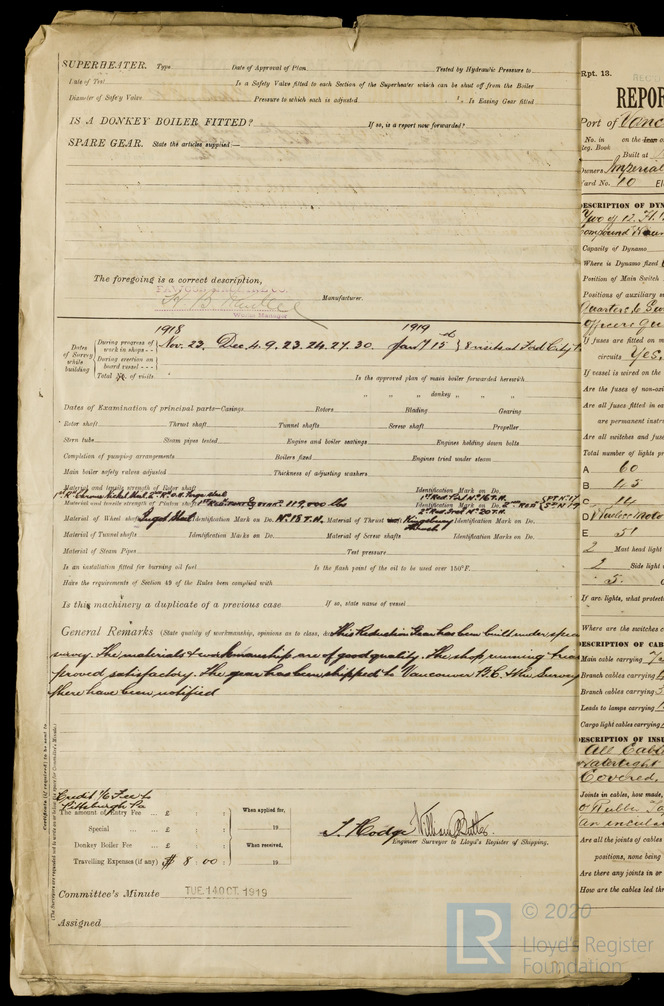 SUPERHEATER. Type Date of Approval of Plan Tested by Hydraulic Pressure to
Date of Test Is a Safety Valve fitted to each Section of the Superheater which can be shut off from the Boiler
Diameter of Safety Valve Pressure to which each is adjusted Is Easing Gear fitted
IS A DONKEY BOILER FITTED? If so, is a report now forwarded?
SPARE GEAR. State the articles supplied:—
The foregoing is a correct description,
Manufacturer.
Works Manager
1918 1919
Dates of Survey while building
During progress of work in shops - - Nov. 23. Dec. 4. 9. 23. 24. 27. 30. Jan 7 15 8 visits at Ford City
During erection on board vessel - - -
Total No. of visits
Is the approved plan of main boiler forwarded herewith
" " " donkey " " "
Dates of Examination of principal parts—Casings Rotors Blading Gearing
Rotor shaft Thrust shaft Tunnel shafts Screw shaft Propeller
Stern tube Steam pipes tested Engine and boiler seatings Engines holding down bolts
Completion of pumping arrangements Boilers fixed Engines tried under steam
Main boiler safety valves adjusted Thickness of adjusting washers
Material and tensile strength of Rotor shaft Identification Mark on Do.
Material and tensile strength of Pinion shaft 119,000 lbs Identification Mark on Do.
Material of Wheel shaft Ingot Steel Identification Mark on Do. No 18 T.H. Material of Thrust shaft Kingsbury Thrust Identification Mark on Do.
Material of Tunnel shafts Identification Marks on Do. Material of Screw shafts Identification Marks on Do.
Material of Steam Pipes Test pressure
Is an installation fitted for burning oil fuel Is the flash point of the oil to be used over 150°F.
Have the requirements of Section 49 of the Rules been complied with
Is this machinery a duplicate of a previous case If so, state name of vessel
General Remarks (State quality of workmanship, opinions as to class, &c. This Reduction Gear has been built under spec
survey. The materials & workmanship are of good quality. The shop running trial
proved satisfactory. The gear has been shipped to Vancouver B.C. & the Survey
there have been notified
Certificate (if required) to be sent to
(The Surveyors are requested not to write on or below the space for Committee's Minute.)
Credit 1/6 Fee to
Pittsburgh Pa
The amount of Entry Fee ... £ : : When applied for,
Special ... ... £ : : 19
Donkey Boiler Fee ... £ : : When received,
Travelling Expenses (if any) $ 8 : 00 : 19
J. Hodge William Butler.
Engineer Surveyor to Lloyd's Register of Shipping.
Committee's Minute TUE. 14 OCT. 1919
Assigned
Rpt. 13.
REPOR
Port of Vanc
No. in on the Iron
Reg. Book
Built at
Owners Imperial
Yard No. 10 El
DESCRIPTION OF DYN
Two of 12. H.
Compound Woun
Capacity of Dynamo
Where is Dynamo fixed
Position of Main Switch
Positions of auxiliary
If fuses are fitted on m
circuits Yes.
If vessel is wired on the
Are the fuses of non-oxi
Are all fuses fitted in eas
are permanent instru
Are all switches and fuses
Total number of lights pr
A 60
B 45
C 14
D
E 5
2 Mast head light
2 Side light
5.
If arc lights, what protect
Where are the switches c
DESCRIPTION OF CAB
Main cable carrying
Branch cables carrying
Branch cables carrying
Leads to lamps carrying
Cargo light cables carrying
DESCRIPTION OF INSU
All Cable
Watertight
Covered.
Joints in cables, how made,
Are all the joints of cable
positions, none being
Are there any joints in or
How are the cables led thr
LR © 2020
Lloyd's Register
Foundation